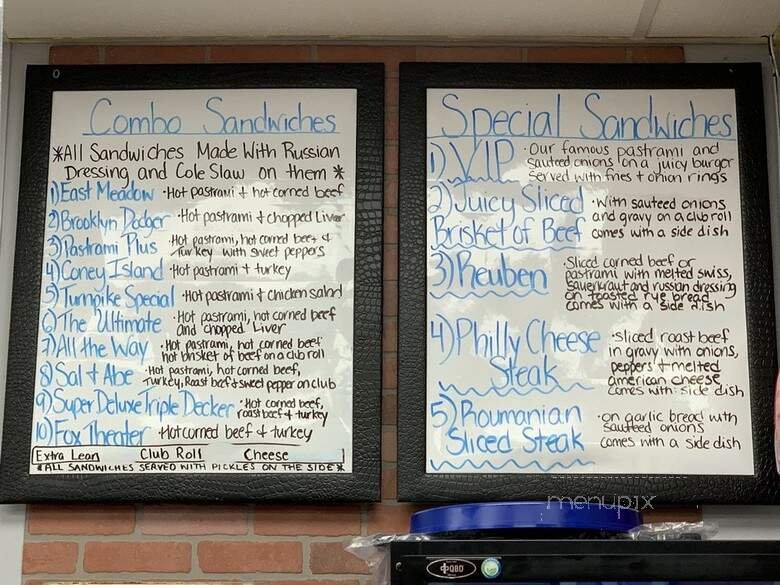 Combo Sandwiches
*All Sandwiches Made With Russian
Dressing and Cole Slaw on them *
1) East Meadow • Hot pastrami + hot corned beef
2) Brooklyn Dodger • Hot pastrami + chopped Liver
3) Pastrami Plus • Hot pastrami, hot corned beef +
Turkey with sweet peppers
4) Coney Island • Hot pastrami + turkey
5) Turnpike Special • Hot pastrami + chicken salad
6) The Ultimate • Hot pastrami, hot corned beef
and chopped Liver
7) All the Way • Hot pastrami, hot corned beef
hot brisket of beef on a club roll
8) Sal + Abe • Hot pastrami, hot corned beef,
Turkey, Roast beef + sweet pepper on club
9) Super Deluxe Triple Decker • Hot corned beef,
roast beef + turkey
10) Fox Theater • Hot corned beef + turkey
Extra Lean Club Roll Cheese
*ALL SANDWICHES SERVED WITH PICKLES ON THE SIDE*
Special Sandwiches
1) V.I.P • Our famous pastrami and
sauteed onions on a juicy burger
served with fries + onion rings
2) Juicy Sliced
Brisket of Beef
• With sauteed onions
and gravy on a club roll
comes with a side dish
3) Reuben
• Sliced corned beef or
pastrami with melted swiss,
sauerkraut and russian dressing
on toasted rye bread
comes with a side dish
4) Philly Cheese
Steak
• sliced roast beef
in gravy with onions,
peppers + melted
american cheese
comes with side dish
5) Roumanian
Sliced Steak
• on garlic bread with
sauteed onions
comes with a side dish
menupix
QBD